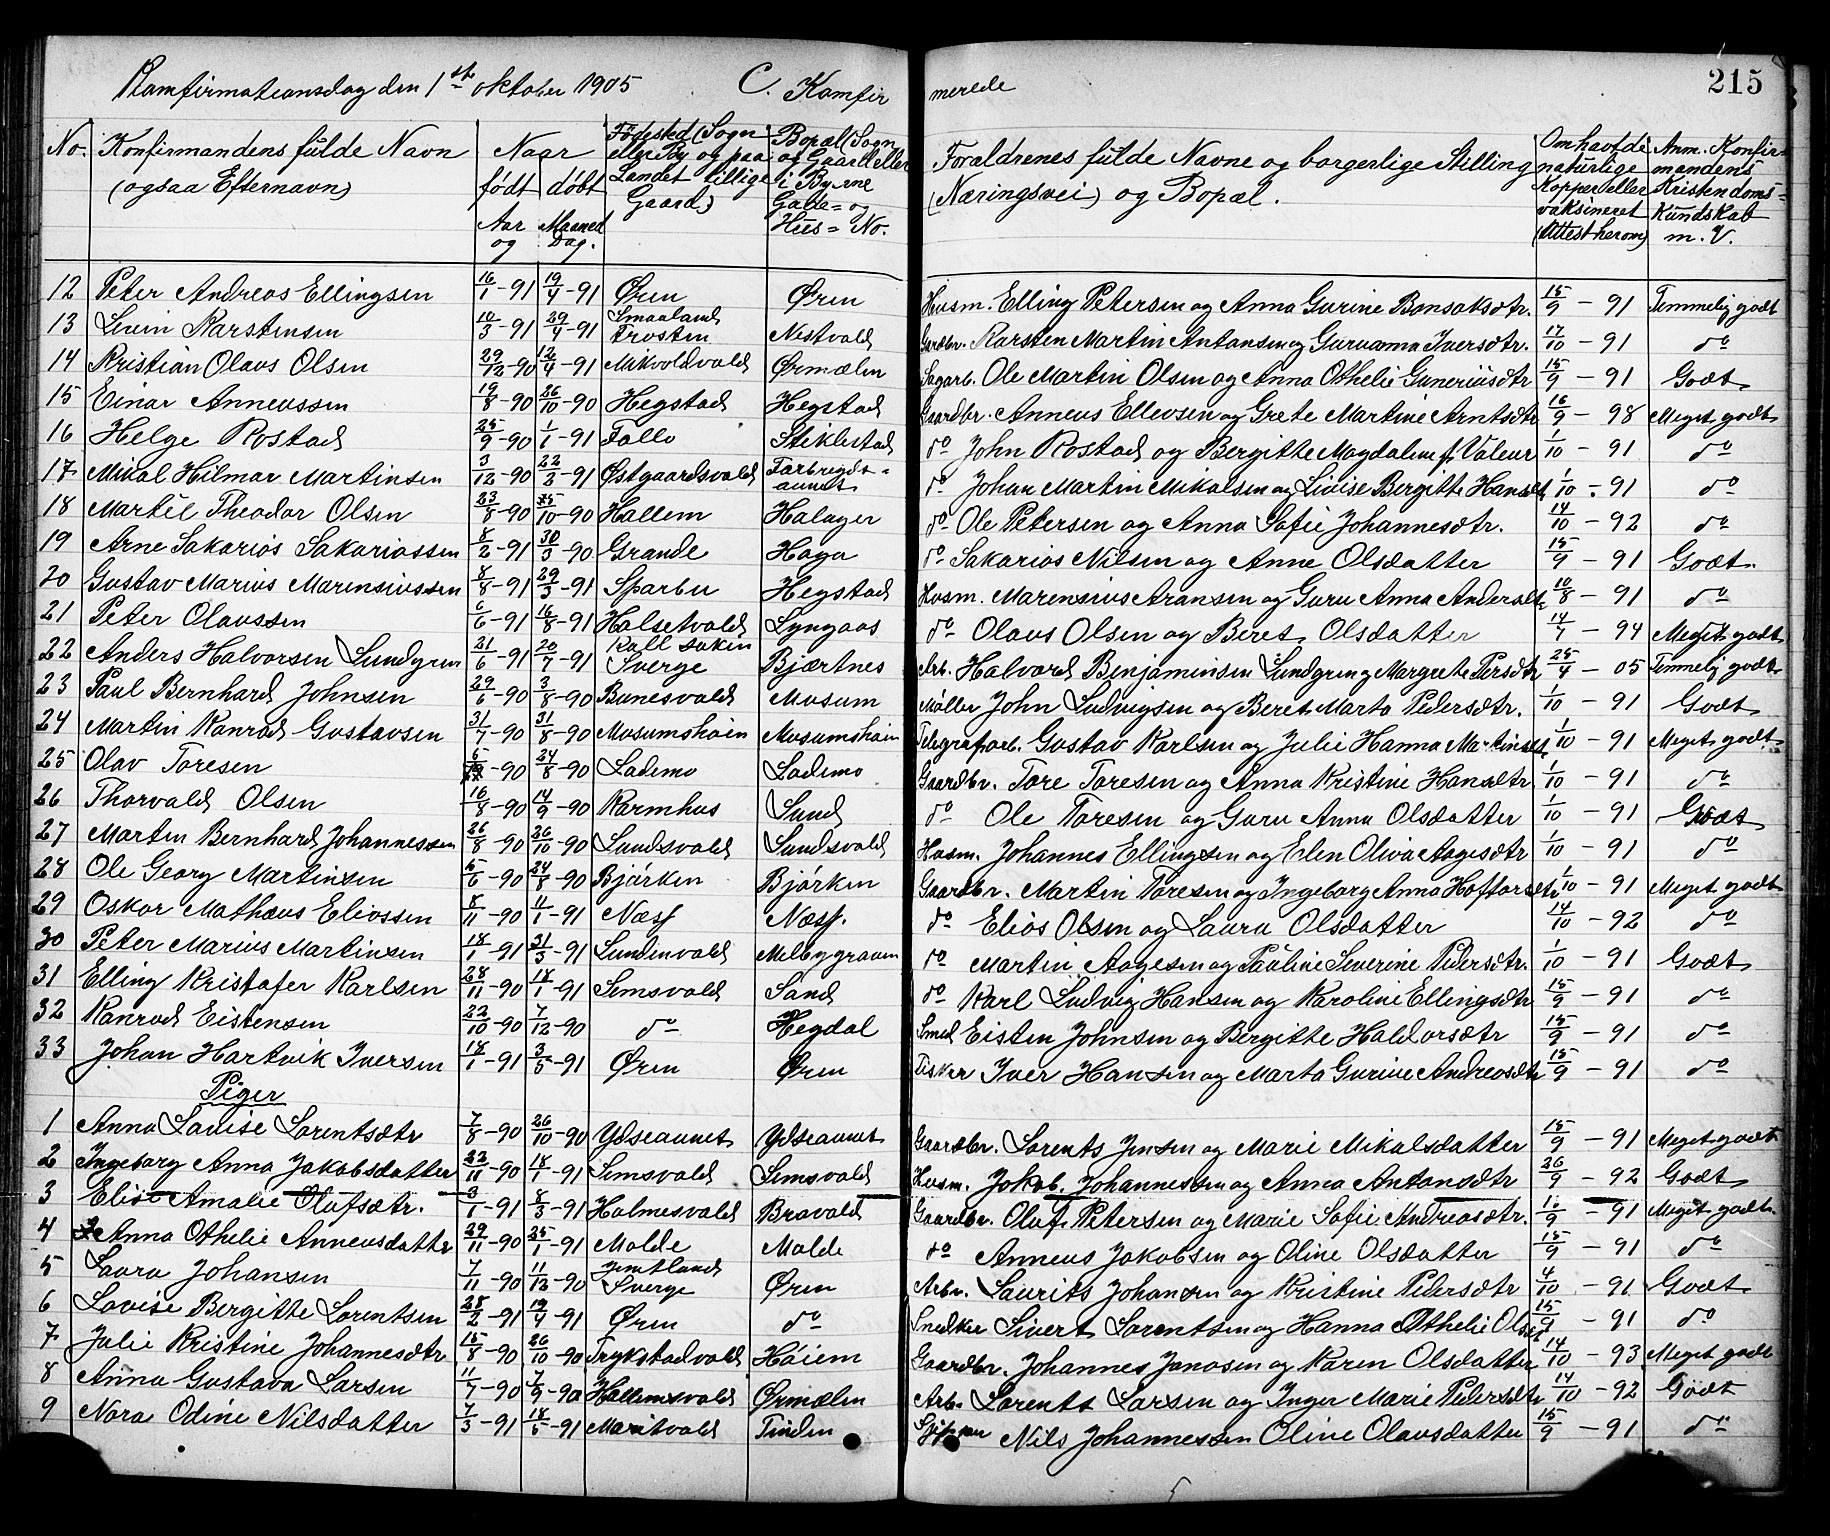 Konfirmationsdag den 1ste oktober 1905 C. Konfir merede 215
No. Konfirmandens fulde Navn (ogsaa Efternavn) Naar født døbt Aar og Maaned Dag. Fødested (Sogn eller By og paa Landet tillige Gaard) Bopæl (Sogn og Gaard eller i Byerne Gade= og Hus= No. Forældrenes fulde Navne og borgerlige Stilling (Næringsvei) og Bopæl. Om havt de naturlige Kopper eller vaksineret (Attest herom) Anm. Konfirmandens Kristendoms= Kundskab m. V.
12 Peter Andreas Ellingsen 16/1-91 19/4-91 Øren Øren Husm. Elling Petersen og Anna Gurine Bonsaksdtr. 15/9 - 91 Temmelig godt
13 Levin Karstensen 10/3-91 29/4-91 Smaaland Frosten Nestvold Gardbr. Karsten Martin Antonsen og Guruanna Iversdtr. 17/10 - 91 do
14 Kristian Olaus Olsen 29/12-90 12/4-91 Mikvoldvald Ørmælen Sagarb. Ole Martin Olsen og Anna Othelie Guneriusdtr 15/9 - 91 Godt
15 Einar Anneussen 19/8-90 26/10-90 Hegstad Hegstad Gaardbr. Anneus Ellevsen og Grete Martine Arntsdtr 16/9 - 98 Meget godt
16 Helge Rostad 25/9-90 1/1-91 Follo Stiklestad do John Rostad og Bergitte Magdalene f. Valeur 1/10 - 91 do
17 Mikal Hilmar Martinsen 3/12-90 22/2-91 Østgaardsvald Forbregds= aunet do Johan Martin Mikalsen og Lovise Bergitte Hansdt 1/10 - 91 do
18 Martil Theodor Olsen 23/8-90 25/10-90 Hallem Halager do Ole Petersen og Anna Sofie Johannesdtr. 14/10 - 92 do
19 Arne Sakarias Sakariassen 8/2-91 30/3-90 Grande Haga do Sakarias Nilsen og Anne Olsdatter 15/9 - 91 Godt.
20 Gustav Marius Marensiussen 8/8-91 29/3-91 Sparbu Hegstad Husm. Marensius Aransen og Guru Anna Andersdtr 10/8 - 91 do
21 Peter Olaussen 6/6-91 16/8-91 Halsetvald Lyngaas do Olaus Olsen og Beret Olsdatter 14/7 - 94 Meget godt
22 Anders Halvorsen Lundgren 21/6-91 20/7-91 Kall sokn Sverge Bjærtnes Arb. Halvard Benjaminsen Lundgren og Margrete Persdtr 25/4 - 05 Temmelig godt
23 Paul Bernhard Johnsen 29/6-90 3/8-90 Bunesvald Musum Møller John Ludvigsen og Beret Marta Pedersdtr. 1/10 - 91 Godt
24 Martin Konrad Gustavsen 31/7-90 31/8-90 Musumshain Musumshain Telegrafarb. Gustav Karlsen og Julie Hanna Martinsdt 1/10 - 91 Meget godt
25 Olav Toresen 6/-90 24/8-90 Lademo Lademo Gaardbr. Tore Toresen og Anna Kristine Hansdtr. 1/10 - 91 do
26 Thorvald Olsen 16/8-90 14/9-90 Karmhus Sund do Ole Toresen og Guru Anna Olsdatter 1/10 - 91 Godt
27 Martin Bernhard Johannessen 26/8-90 26/10-90 Sundsvald Sundsvald Husm. Johannes Ellingsen og Elen Oliva Aagesdtr 1/10 - 91 do
28 Ole Georg Martinsen 5/6-90 24/8-90 Bjørken Bjørken Gaardbr. Martin Toresen og Ingeborg Anna Hoftorsdtr 1/10 - 91 Meget godt
29 Oskar Mathæus Eliassen 8/11-90 11/1-91 Næss Næss. do Elias Olsen og Laura Olsdatter 14/10 - 92 do
30 Peter Marius Martinsen 18/1-91 31/3-91 Lundenvald Melbygraven do Martin Aagesen og Pauline Severine Pedersdtr. 1/10 - 91 Godt
31 Elling Kristofer Karlsen 28/11-90 18/1-91 Semsvald Sand do Karl Ludvig Hansen og Karoline Ellingsdtr 15/9 - 91 do
32 Konrad Eistensen 22/10-90 7/12-90 do Hegdal Smed Eisten Johnsen og Bergitte Haldorsdtr 15/9 - 91 do
33 Johan Hartvik Iversen 18/1-91 3/5-91 Øren Øren Fisker Iver Hansen og Marta Gurine Andreasdtr 15/9 - 91 do
Piger
1 Anna Lovise Lorentsdtr 7/8-90 26/10-90 Ydseaunet Ydseaunet Gaardbr. Lorents Jensen og Marie Mikalsdatter 15/9 - 91 Meget godt
2 Ingeborg Anna Jakobsdatter 22/11-90 18/1-91 Semsvald Semsvald Husm. Jakob Johannessen og Anna Antonsdtr 26/9 - 92 Godt
3 Elise Amalie Olufsdtr. 3/1-91 8/3-91 Holmesvald Bravald Gaardbr. Oluf Petersen og Marie Sofie Andreasdtr. 1/9 - 91 Meget godt
4 Anna Othelie Anneusdatter 29/11-90 25/1-91 Molde Molde do Anneus Jakobsen og Oline Olsdatter 15/9 - 91 do
5 Laura Johansen 7/11-90 11/12-90 Jemtland Sverge Øren Arb. Laurits Johansen og Kristine Pedersdtr 4/10 - 91 Godt
6 Lovise Bergitte Lorentsen 28/2-91 19/4-91 Øren do Snedker Sivert Lorentsen og Hanna Othelie Olsdt 15/9 - 91 do
7 Julie Kristine Johannesdtr 15/8-90 26/10-90 Trykstadvald Høiem Gaardbr. Johannes Jonasen og Karen Olsdatter 14/10 - 93 Meget godt
8 Anna Gustava Larsen 11/7-90 7/9-90 Hallemsvald Ørmælen Arb. Lorents Larsen og Inger Marie Pedersdtr 14/10 - 92 Godt
9 Nora Odine Nilsdatter 7/3-91 18/5-91 Maritvald Tinden Nils Johannessen Oline Olausdatter 15/9 - 91 do